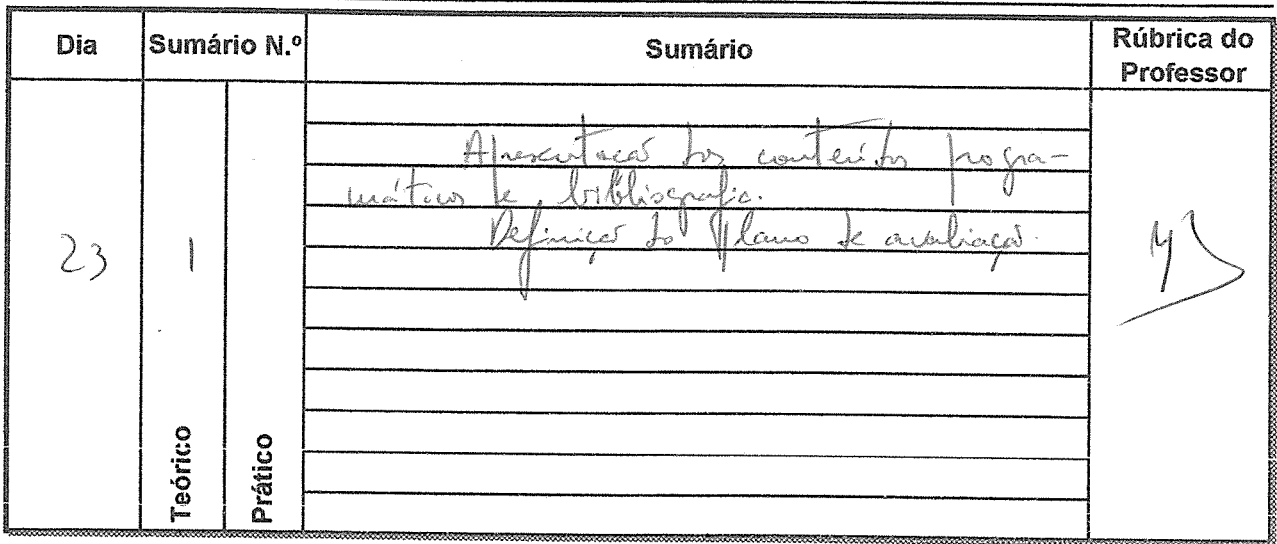 Dia Sumário N.º Sumário Rúbrica do Professor
Teórico Prático
23 1
Apresentação dos conteúdos progra-
máticos e bibliografia.
Definição do Plano de avaliação.